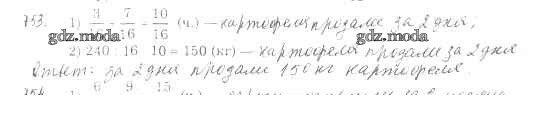 753. 1) 3/16 + 7/16 = 10/16 (ч.) — картофеля продали за 2 дня;
gdz.moda gdz.moda
2) 240 : 16 · 10 = 150 (кг) — картофеля продали за 2 дня
Ответ: за 2 дня продали 150 кг картофеля.
6 9 15